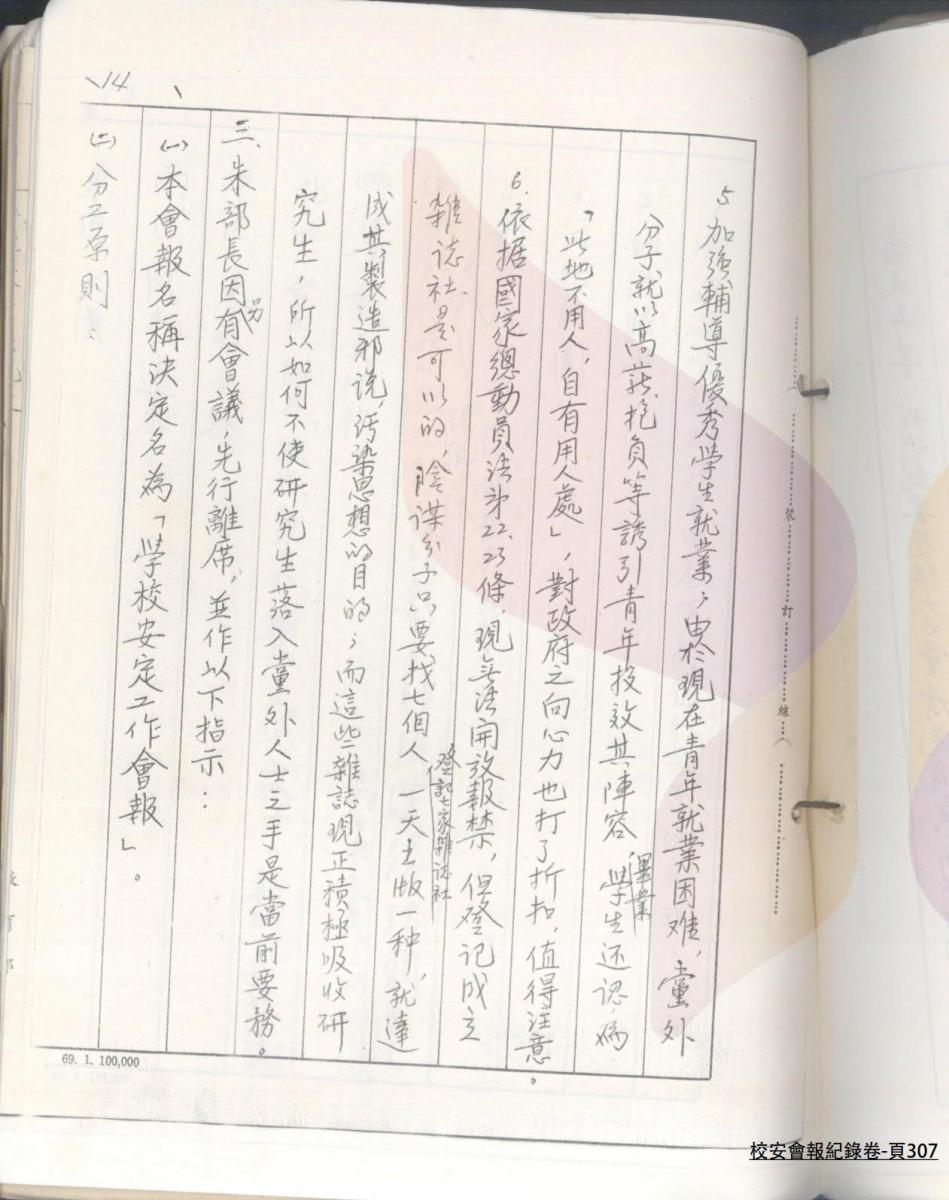 14
5 加強輔導優秀學生就業，由於現在青年就業困难，黨外
分子就以高薪抱負等誘引青年投效其陣容 畢業學生还認為
「此地不用人，自有用人處」，對政府之向心力也打了折扣，值得注意。
6. 依据國家總動員法第22.23條現無法開放報禁，但登記成立
雜誌社是可以的，陰謀分子只要找七個人登記七家雜誌社一天出版一种，就達
成其製造邪说，污染思想的目的；而這些雜誌現正積極吸收研
究生，所以如何不使研究生落入黨外人士之手是當前要務。
三、朱部長因另有會議，先行離席，並作以下指示：
(一) 本會報名稱決定名為「學校安定工作會報」。
(二) 分工原則：
裝 訂 線
69. 1. 100,000
校安會報紀錄卷-頁307